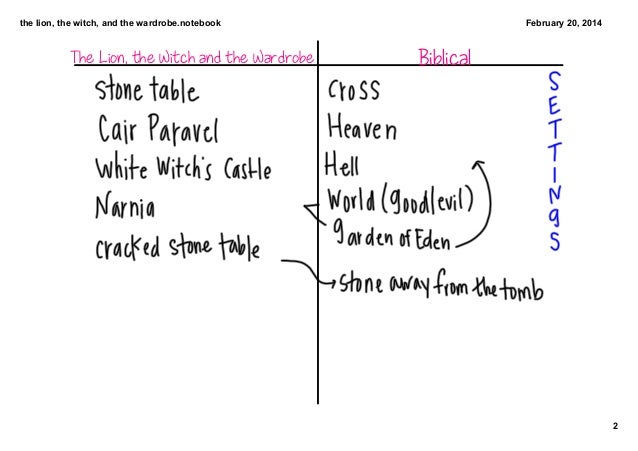 the lion, the witch, and the wardrobe.notebook February 20, 2014
The Lion, the Witch and the Wardrobe Biblical
stone table cross
Cair Paravel Heaven
White Witch's Castle Hell
Narnia World (good/evil)
garden of Eden
cracked stone table
stone away from the tomb
S
E
T
T
I
N
g
S
2